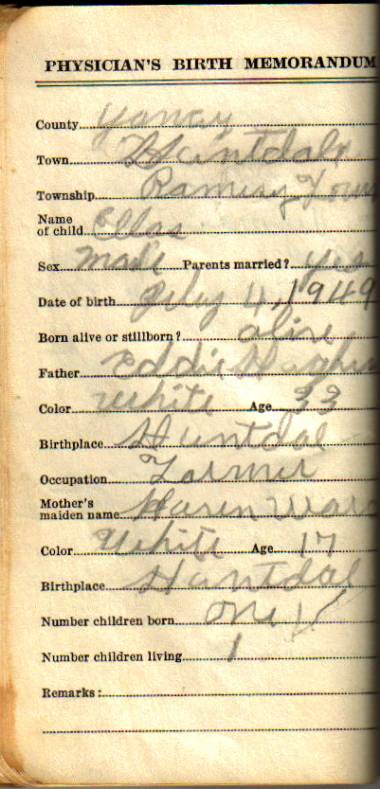 PHYSICIAN'S BIRTH MEMORANDUM
County Yancy
Town Huntdale
Township Ramsey Town
Name
of child
Sex male Parents married? yes
Date of birth July 4, 1949
Born alive or stillborn? alive
Father Eddie
Color White Age 33
Birthplace Huntdal
Occupation Farmer
Mother's
maiden name Karen
Color White Age 17
Birthplace Huntdal
Number children born one 1
Number children living 1
Remarks: